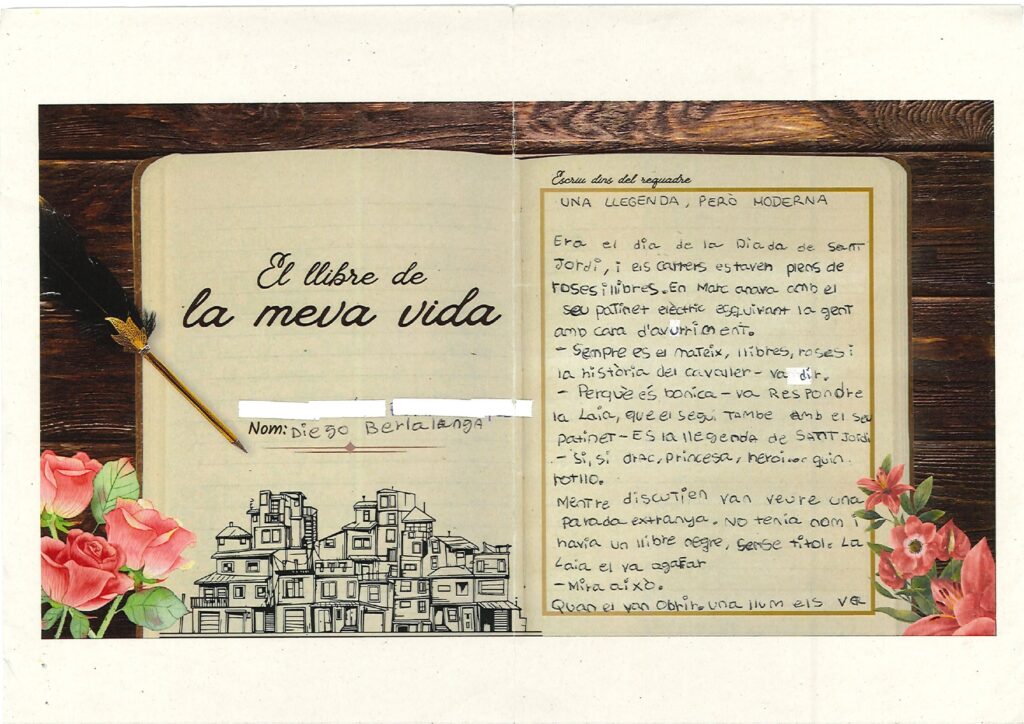 El llibre de
la meva vida
Nom: Diego Berlalanga
Escriu dins del requadre
UNA LLEGENDA, PERÒ MODERNA
Era el dia de la Diada de SANT
Jordi, i els carrers estaven plens de
roses i llibres. En Marc anava amb el
seu patinet elèctric esquivant la gent
amb cara d'avurriment.
- Sempre es el mateix, llibres, roses i
la història del cavaller - va dir.
- Perquè és bonica - va RESPONdre
la Laia, que el segui TAMBE AMB el seu
patinet - ES la llegenda de SANT Jordi
- Si, si drac, princesa, heroi... quin
rotllo.
Mentre discutien van veure una
parada extranya. No tenia nom i
havia un llibre negre, sense titol. La
Laia el va agafar
- Mira això.
Quan el van obrir. una llum els va